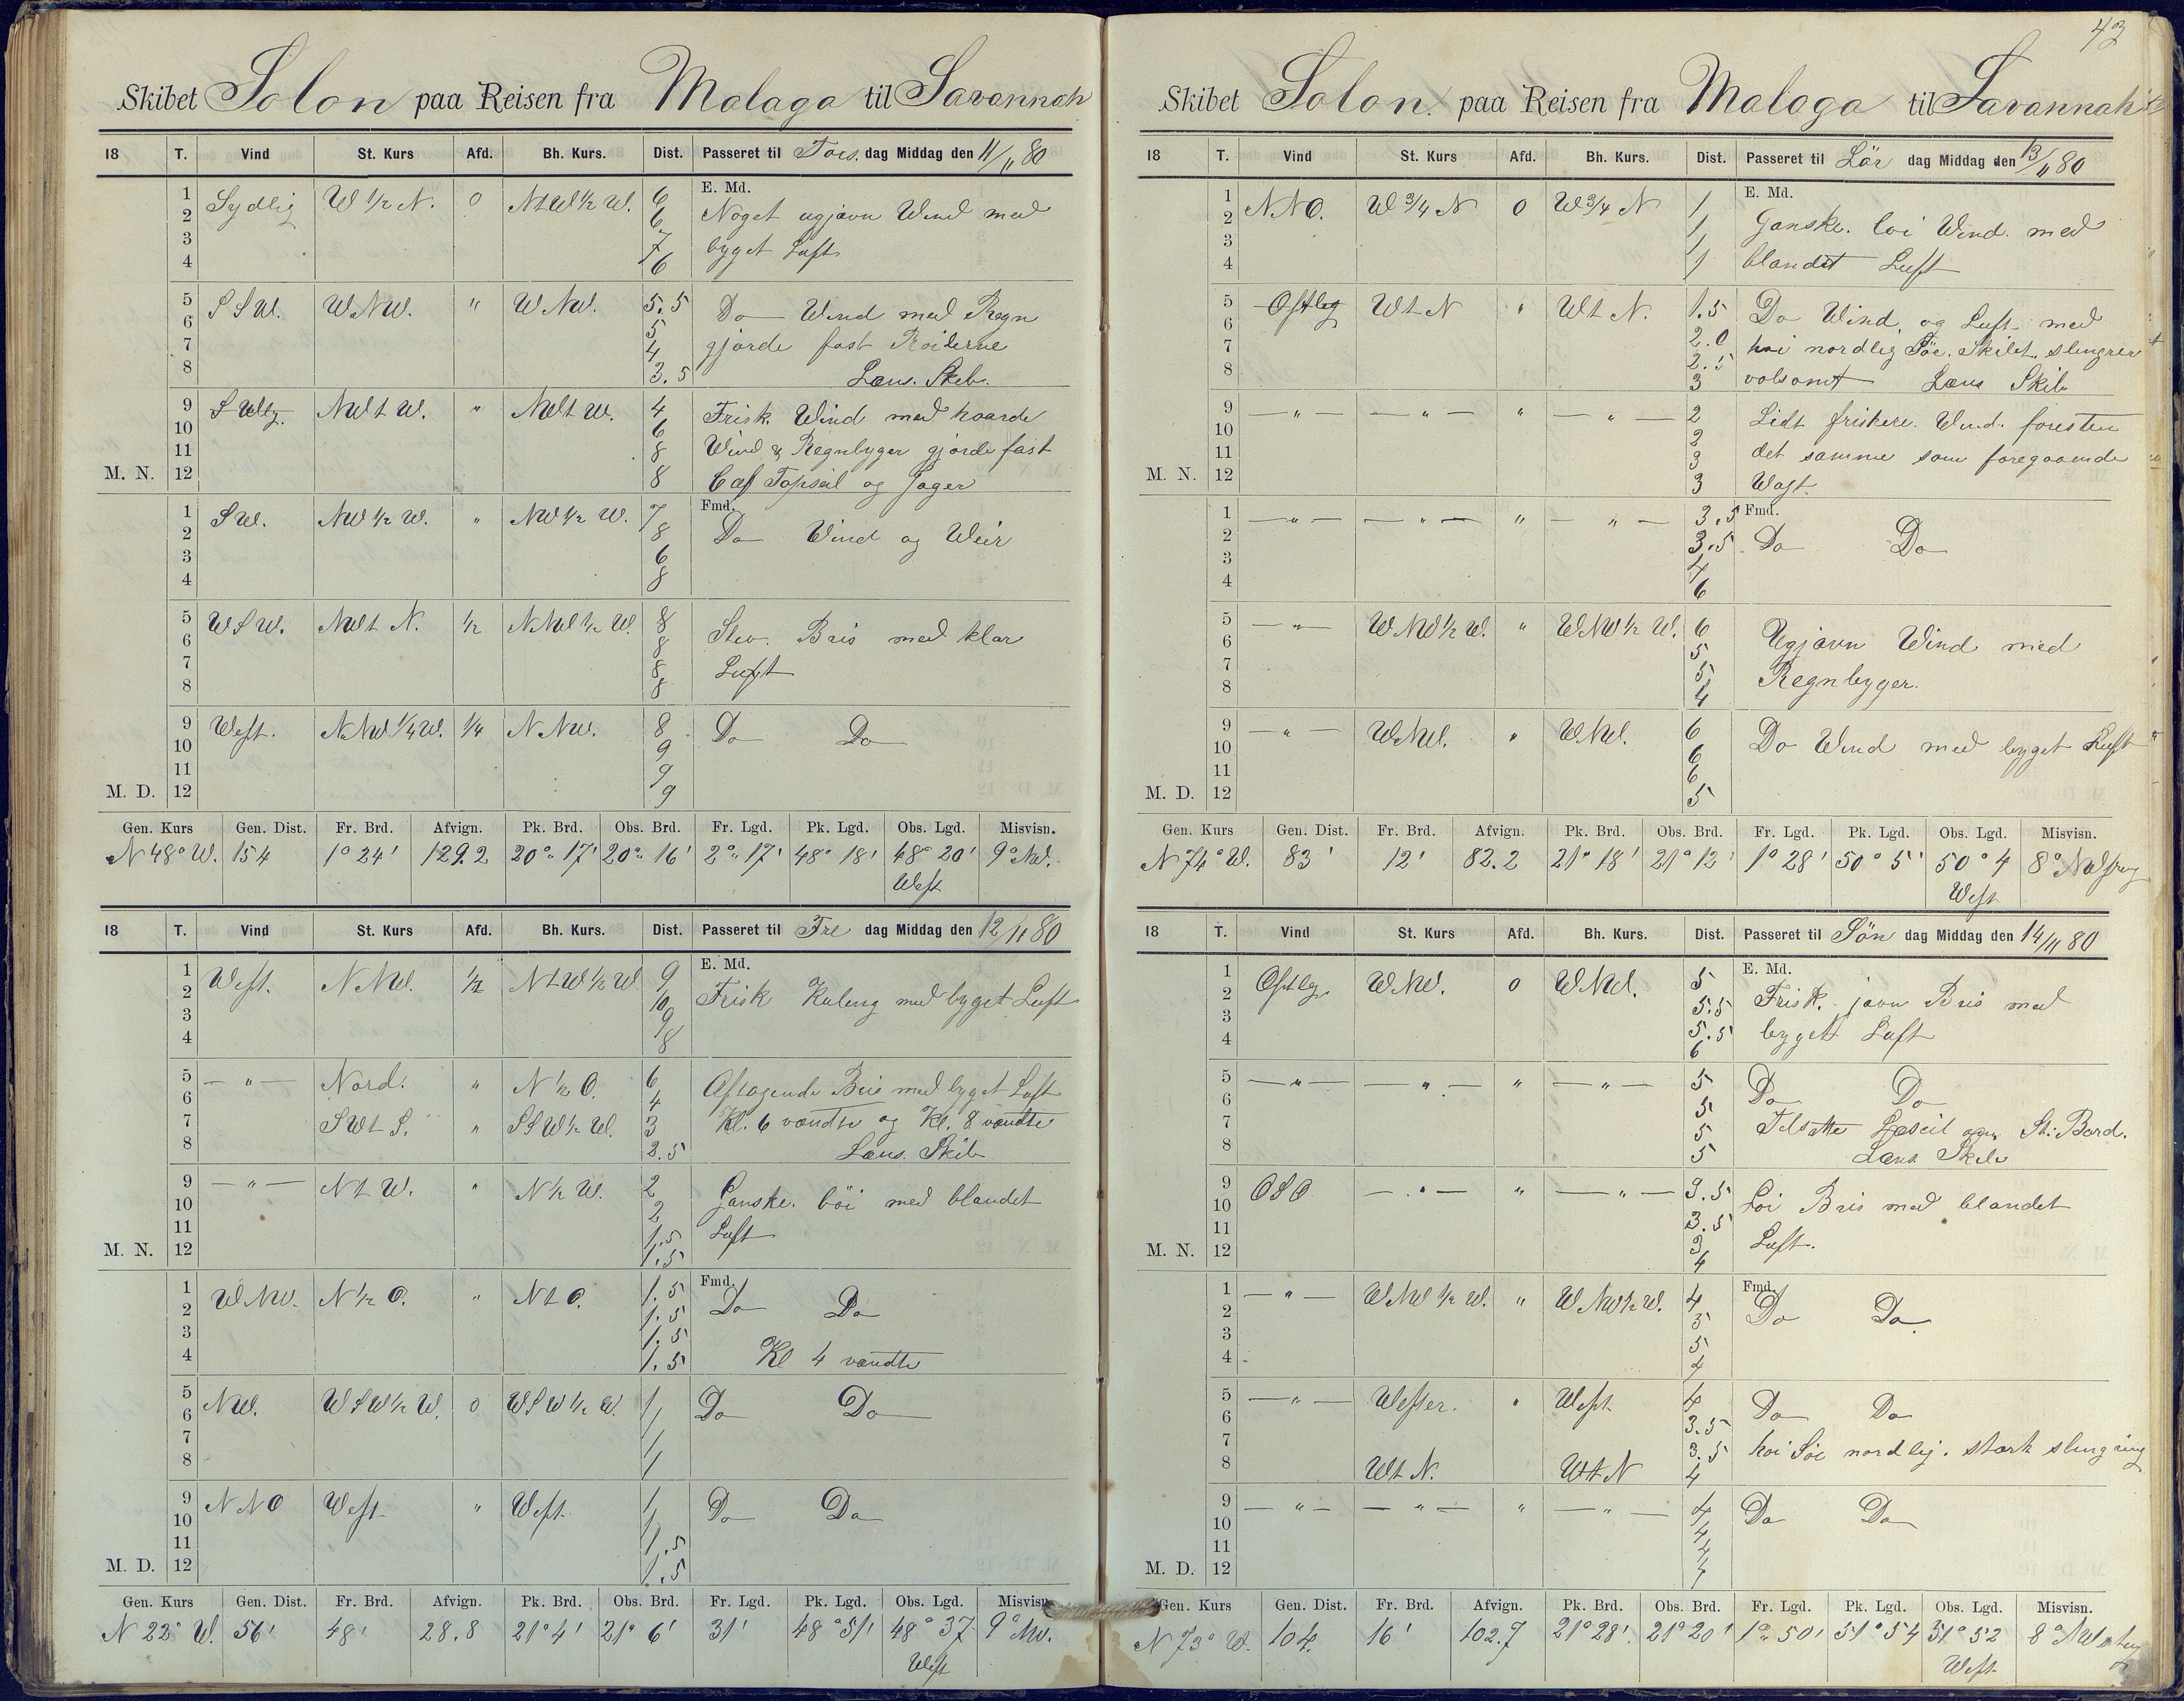 Skibet Solon paa Reisen fra Malaga til Savannah
18 T. Vind St. Kurs Afd. Bh. Kurs. Dist. Passeret til Tors. dag Middag den 11/11 80
1 Sydlig W 1/2 N. 0 NtW 1/2 W. 6 E. Md.
2 6 Noget ugjævn Wind med
3 7 byget Luft
4 6
5 SSW. WNW. " WNW. 5.5 Do Wind med Regn
6 5 gjorde fast Roilerne
7 4
8 3.5 Læns. Skib.
9 SWly. NWtW. " NWtW. 4 Frisk. Wind med haarde
10 6 Wind & Regnbyger gjorde fast
11 8
M. N. 12 8 Topseil og Jager
1 SW. NW 1/2 W. " NW 1/2 W. 7 Fmd.
2 8 Do Wind og Weir
3 6
4 8
5 WSW. NWtN. 1/2 NNW 1/2 W. 8
6 8 Stiv. Bris med klar
7 8 Luft
8 8
9 West. NNW 1/4 W. 1/4 NNW. 8 Do Do
10 9
11 9
M. D. 12 9
Gen. Kurs Gen. Dist. Fr. Brd. Afvign. Pk. Brd. Obs. Brd. Fr. Lgd. Pk. Lgd. Obs. Lgd. Misvisn.
N 48° W. 154 1° 24' 129.2 20° 17' 20° 16' 2° 17' 48° 18' 48° 20' 9° NW.
West
18 T. Vind St. Kurs Afd. Bh. Kurs. Dist. Passeret til Fre dag Middag den 12/11 80
1 West. NNW. 1/2 NtW 1/2 W 9 E. Md.
2 10 Frisk Kuling med byget Luft
3 9
4 8
5 — " — Nord. " N 1/2 O. 6 Aftagende Bris med byget Luft
6 4
7 SWtS. " SSW 1/2 W. 3 Kl. 6 vændte og Kl. 8 vændte
8 2.5 Læns. Skib
9 — " — NtW. " N 1/2 W. 2
10 2 Ganske. löi med blandet
11 1.5 Luft
M. N. 12 1.5
1 WNW. N 1/2 O. " NtO. 1.5 Fmd.
2 1.5 Do Do
3 1.5
4 1.5 Kl 4 vændte
5 NW. WSW 1/2 W. 0 WSW 1/2 W. 1 Do Do
6 1
7 1
8 1
9 NNO West " West. 1 Do Do
10 1
11 1.5
M. D. 12 1.5
Gen. Kurs Gen. Dist. Fr. Brd. Afvign. Pk. Brd. Obs. Brd. Fr. Lgd. Pk. Lgd. Obs. Lgd. Misvisn.
N 22° W. 56' 48' 28.8 21° 4' 21° 6' 31' 48° 51' 48° 37 9° NW.
West
43
Skibet Solon. paa Reisen fra Malaga til Savannah
18 T. Vind St. Kurs Afd. Bh. Kurs. Dist. Passeret til Lör dag Middag den 13/11 80
1 NNO. W 3/4 N 0 W 3/4 N 1 E. Md.
2 1 Ganske. loi Wind. med
3 1
4 1 blandet Luft
5 Ostlig WtN " WtN. 1.5 Do Wind, og Luft med
6 2.0
7 2.5 hoi nordlig Söe. Skibet slingrer
8 3 volsomt Læns Skib
9 — " — — " — " — " — 2 Lidt friskere. Wind. foresten
10 2
11 3 det samme som foregaaende
M. N. 12 3 Wagt.
1 — " — — " — " — " — 3.5 Fmd.
2 3.5 Do Do
3 4
4 6
5 — " — WNW 1/2 W. " WNW 1/2 W. 6
6 5 Ugjævn Wind med
7 5 Regnbyger.
8 4
9 — " — WNW. " WNW. 6 Do Wind med byget Luft
10 6
11 6
M. D. 12 5
Gen. Kurs Gen. Dist. Fr. Brd. Afvign. Pk. Brd. Obs. Brd. Fr. Lgd. Pk. Lgd. Obs. Lgd. Misvisn.
N 74° W. 83' 12' 82.2 21° 18' 21° 12' 1° 28' 50° 5' 50° 4 8°
West
18 T. Vind St. Kurs Afd. Bh. Kurs. Dist. Passeret til Sön dag Middag den 14/11 80
1 Ostlig. WNW. 0 WNW. 5 E. Md.
2 5.5 Frisk. jævn Bris med
3 5.5 byget Luft
4 6
5 — " — — " — " — " — 5 Do Do
6 5
7 5 Tilsatte Læseil St: Bord.
8 5 Læns Skib
9 OSO — " — " — " — 3.5
10 3.5 Loi Bris med blandet
11 3 Luft.
M. N. 12 4
1 — " — WNW 1/2 W. " WNW 1/2 W. 4 Fmd.
2 5 Do Do
3 5
4 4
5 — " — Wester. " West 4 Do Do
6 3.5
7 3.5 hoi Söe nordlig. stærk slingring
8 WtN. WtN 4
9 — " — — " — " — " — 4 Do Do
10 4
11 4
M. D. 12 4
Gen. Kurs Gen. Dist. Fr. Brd. Afvign. Pk. Brd. Obs. Brd. Fr. Lgd. Pk. Lgd. Obs. Lgd. Misvisn.
N 73° W. 104. 16' 102.7 21° 28' 21° 20' 1° 50' 51° 54 51° 52 8°
West